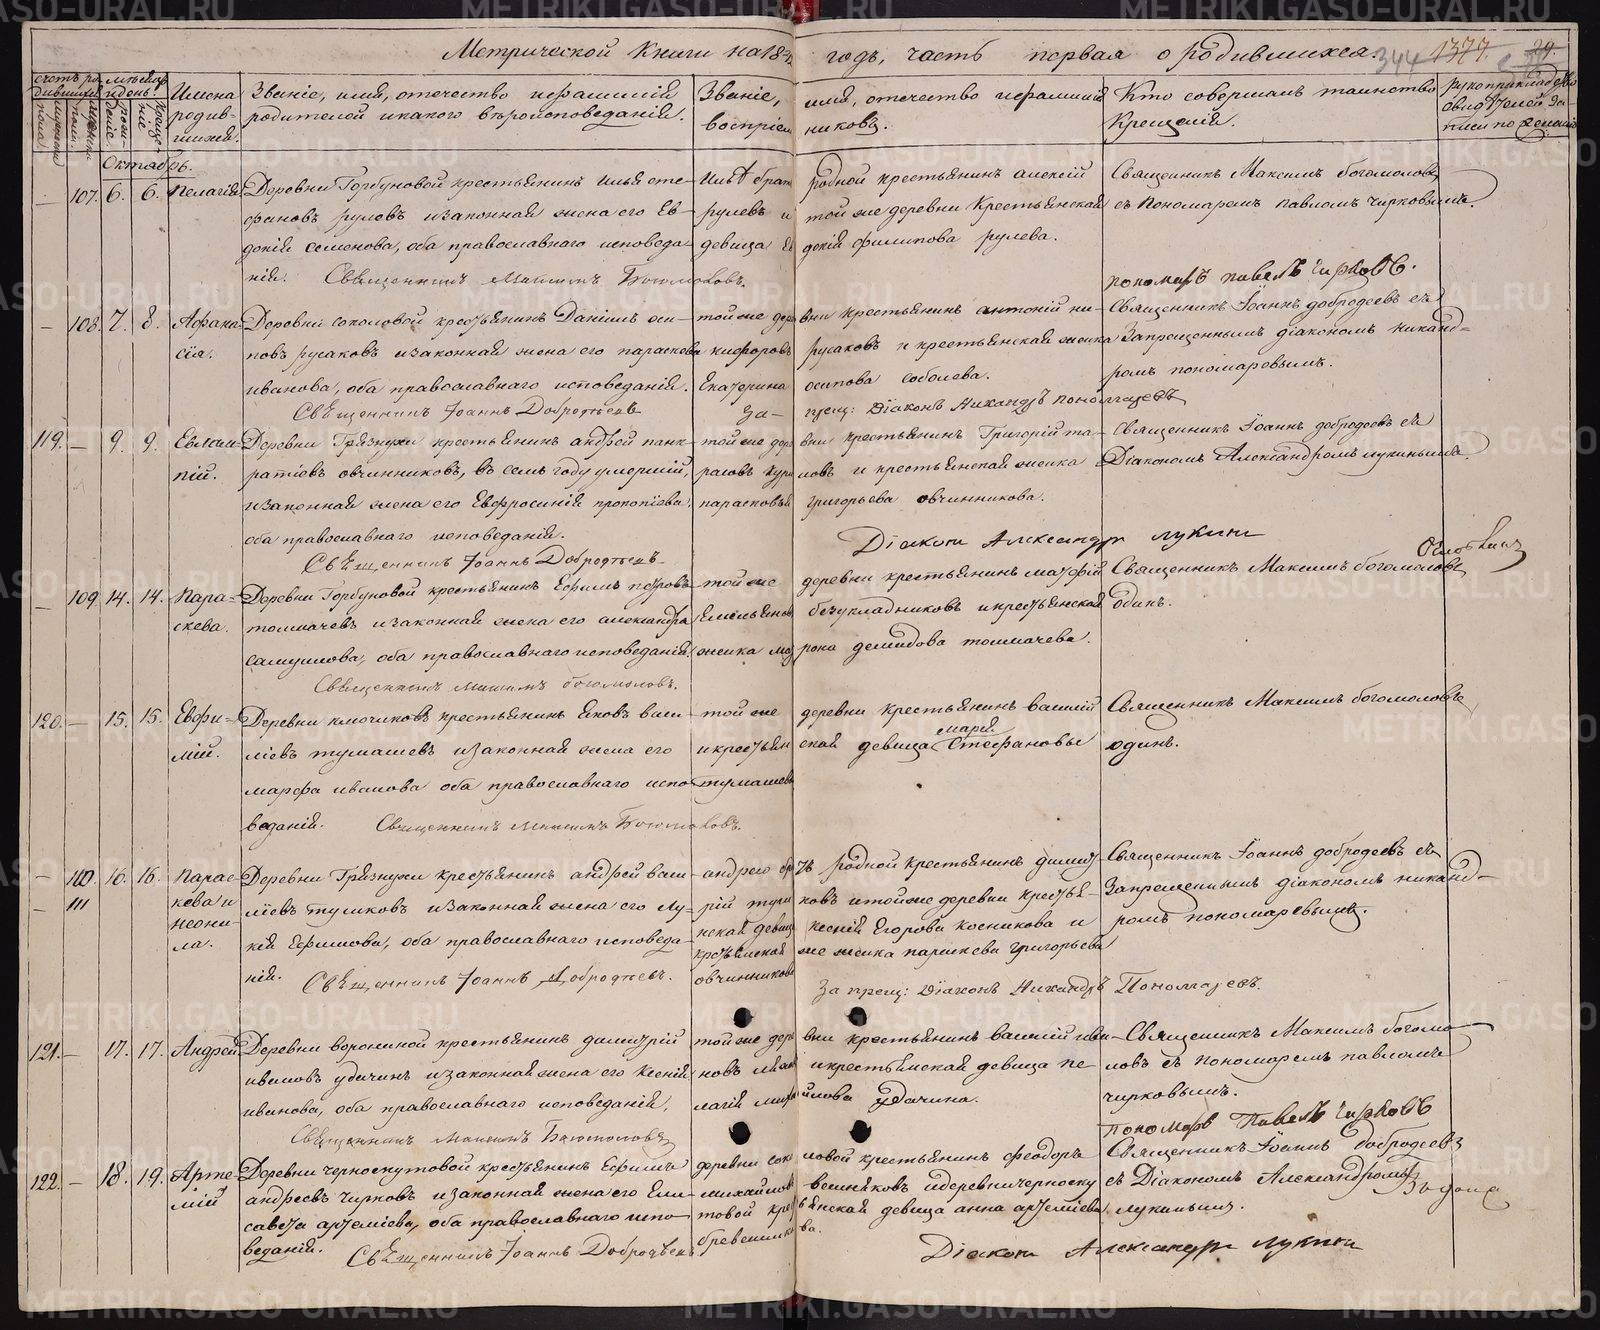 Метрической Книги на 18 годъ, часть первая о родившихся.
344 1377.
Имена родив-шихся.
Званіе, имя, отечество и фамилія родителей и какого вѣроисповеданія.
Званіе, имя, отечество и фамилія воспріем никовъ.
Кто совершалъ таинство Крещенія.
Октябрь.
107. 6. 6. Пелагія
Деревни Горбуновой крестьянинъ Илья сте-
фановъ рулевъ и законная жена его Ев-
докія семенова, оба православнаго исповеда-
нія. Священникъ Максимъ Богомоловъ.
Ильѣ братъ родной крестьянинъ алексій
рулевъ и той же деревни Крестьянская
девица Ев докія филипова рулева.
Священникъ Максимъ богомоловъ
съ Пономаремъ павломъ чирковымъ.
пономарь павелъ чирковъ.
108. 7. 8. Афана-
сія.
Деревни соколовой крестьянинъ Даніилъ оси-
повъ русаковъ и законная жена его параскева
иванова, оба православнаго исповеданія.
Священникъ Іоаннъ Добродѣевъ
той же дере вни крестьянинъ антоній ни-
кифоровъ русаковъ и крестьянская женка
Екатерина осипова соболева.
За- прещ: Діаконъ Никандръ Пономаревъ
Священникъ Іоаннъ добродеевъ съ
Запрещеннымъ діакономъ никанд-
ромъ пономаревымъ.
119. 9. 9. Евлам-
пій.
Деревни Грязнухи крестьянинъ андрей панк-
ратіевъ овчинниковъ, въ семъ году умершій,
и законная жена его Евфросинія прокопіева,
оба православнаго исповеданія.
Священникъ Іоаннъ Добродѣевъ
той же дере вни крестьянинъ Григорій та-
расовъ и крестьянская женка
парасковья григорьева овчинникова.
Діаконъ Александръ лукинъ
Священникъ Іоаннъ добродеевъ съ
Діакономъ Александромъ лукинымъ.
109. 14. 14. Пара-
скева.
Деревни Горбуновой крестьянинъ Ефимъ петровъ
толмачевъ и законная жена его александра
самуилова, оба православнаго исповеданія.
Священникъ максимъ богомоловъ.
той же деревни крестьянинъ матфій
Емельяновъ безукладниковъ и крестьянская
женка мод рона демидова толмачева.
Священникъ Максимъ богомоловъ
одинъ.
120. 15. 15. Евфи-
мій.
Деревни ключиковъ крестьянинъ яковъ васи-
ліевъ тумашевъ и законная жена его
марфа иванова оба православнаго испо-
веданія. Священникъ максимъ Богомоловъ.
той же деревни крестьянинъ василій
и крестьян ская девица марія Стефановы
тумашевы
Священникъ Максимъ богомоловъ
одинъ.
110. 16. 16. Парас-
111
кева и
неони-
ла.
Деревни Грязнухи крестьянинъ андрей васи-
ліевъ туликовъ и законная жена его лу-
кія Ефимова, оба православнаго исповеда-
нія. Священникъ Іоаннъ Добродѣевъ.
андрею бр тъ родной крестьянинъ димит-
рій тули ковъ и той же деревни крестья-
нская девиц ксенія Егорова косникова и
крестьянская же женка параскева григорьева
овчинникова
Запрещ: Діаконъ Никандръ Пономаревъ.
Священникъ Іоаннъ добродеевъ съ
Запрещеннымъ діакономъ никанд-
ромъ пономаревымъ.
121. 17. 17. Андрей
Деревни ворониной крестьянинъ димитрій
ивановъ удачинъ и законная жена его Ксенія
иванова, оба православнаго исповеданія.
Священникъ Максимъ Богомоловъ
той же дере вни крестьянинъ василій ива-
новъ и крестьянская девица пе-
лагія миха йлова удачина.
Священникъ Максимъ богомо-
ловъ съ пономаремъ павломъ
чирковымъ.
пономарь Павелъ чирковъ
122. 18. 19. Арте-
мій
Деревни черноскутовой крестьянинъ Ефимъ
андреевъ чирковъ и законная жена его Ели-
савета артеміева, оба православнаго испо-
веданія. Священникъ Іоаннъ Добродѣевъ
деревни сок оловой крестьянинъ феодоръ
михайлов и деревни черноску
товой крес тьянская девица анна артеміева
Священникъ Іоаннъ добродеевъ
съ Діакономъ Александромъ
лукинымъ.
Діаконъ Александръ лукинъ
METRIKI.GASO-URAL.RU